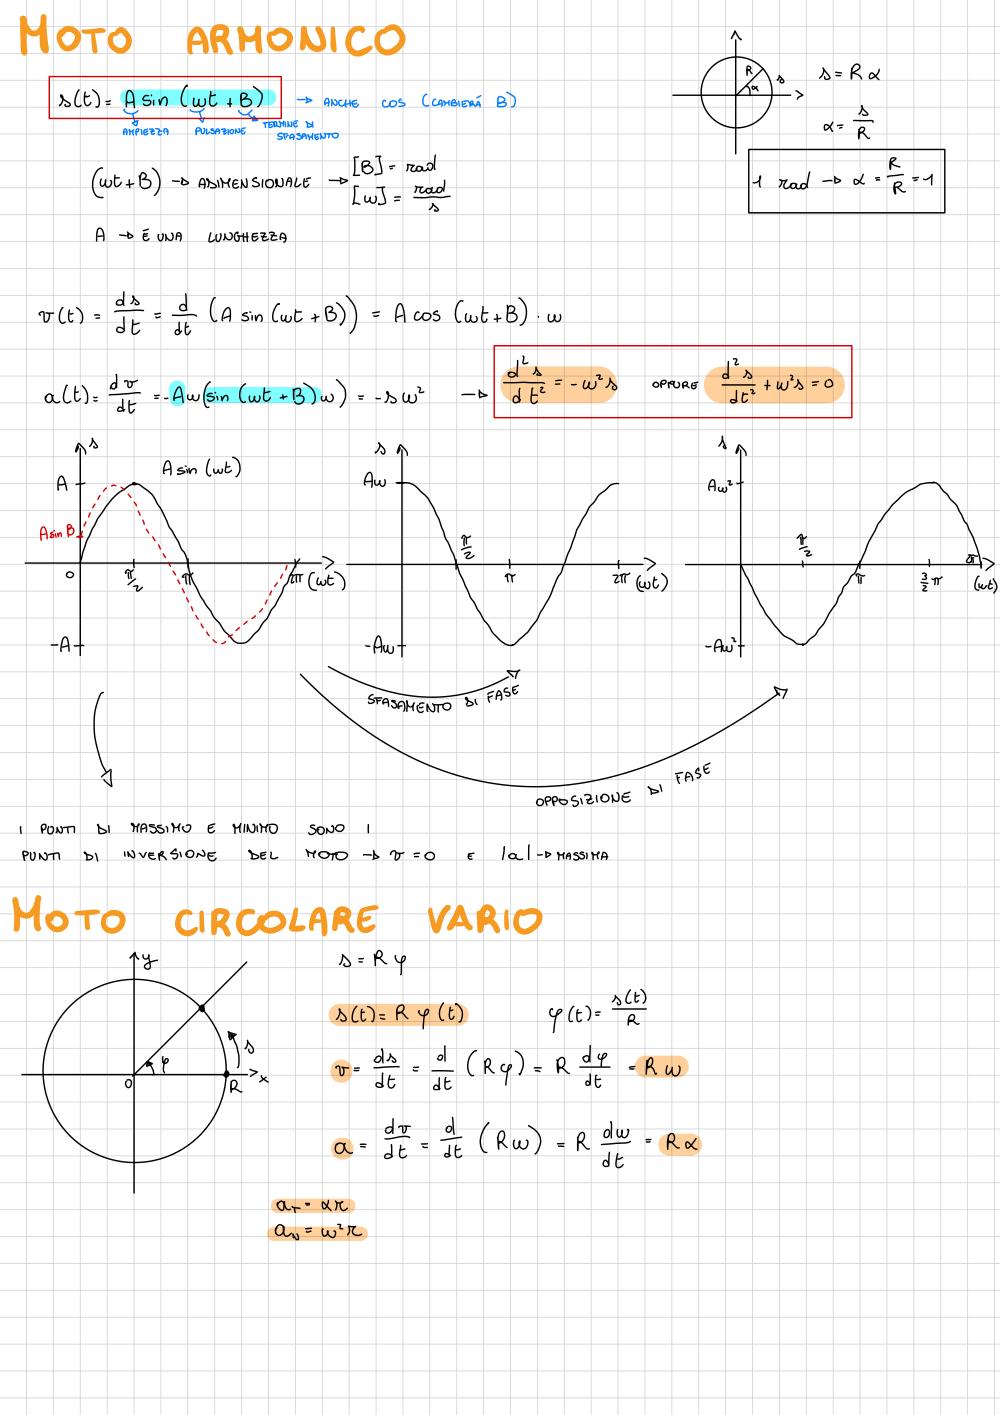 MOTO ARMONICO
s(t) = A sin (ωt + B) → ANCHE COS (CAMBIERÁ B)
AMPIEZZA PULSAZIONE TERMINE DI SFASAMENTO
R s α
s = R α
α = s/R
1 rad → α = R/R = 1
(ωt + B) → ADIMENSIONALE → [B] = rad
[ω] = rad/s
A → É UNA LUNGHEZZA
v(t) = ds/dt = d/dt (A sin (ωt + B)) = A cos (ωt + B) · ω
a(t) = dv/dt = -Aω(sin (ωt + B)ω) = -sω² → d²s/dt² = -ω²s OPPURE d²s/dt² + ω²s = 0
s A A sin B 0 π/2 π 2π (ωt) -A
A sin (ωt)
s Aω π/2 π 2π (ωt) -Aω
s Aω² π/2 π 3/2 π 2π (ωt) -Aω²
SFASAMENTO DI FASE
OPPOSIZIONE DI FASE
I PUNTI DI MASSIMO E MINIMO SONO I
PUNTI DI INVERSIONE DEL MOTO → v = 0 E |a| → MASSIMA
MOTO CIRCOLARE VARIO
y φ s 0 R x
s = R φ
s(t) = R φ (t) φ(t) = s(t)/R
v = ds/dt = d/dt (Rφ) = R dφ/dt = R ω
a = dv/dt = d/dt (Rω) = R dω/dt = R α
a_T = αr
a_N = ω²r